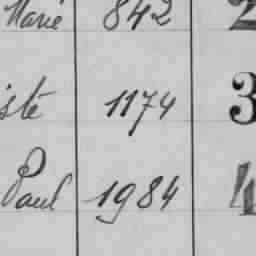 Marie 842 2
iste 1174 3
Paul 1984 4